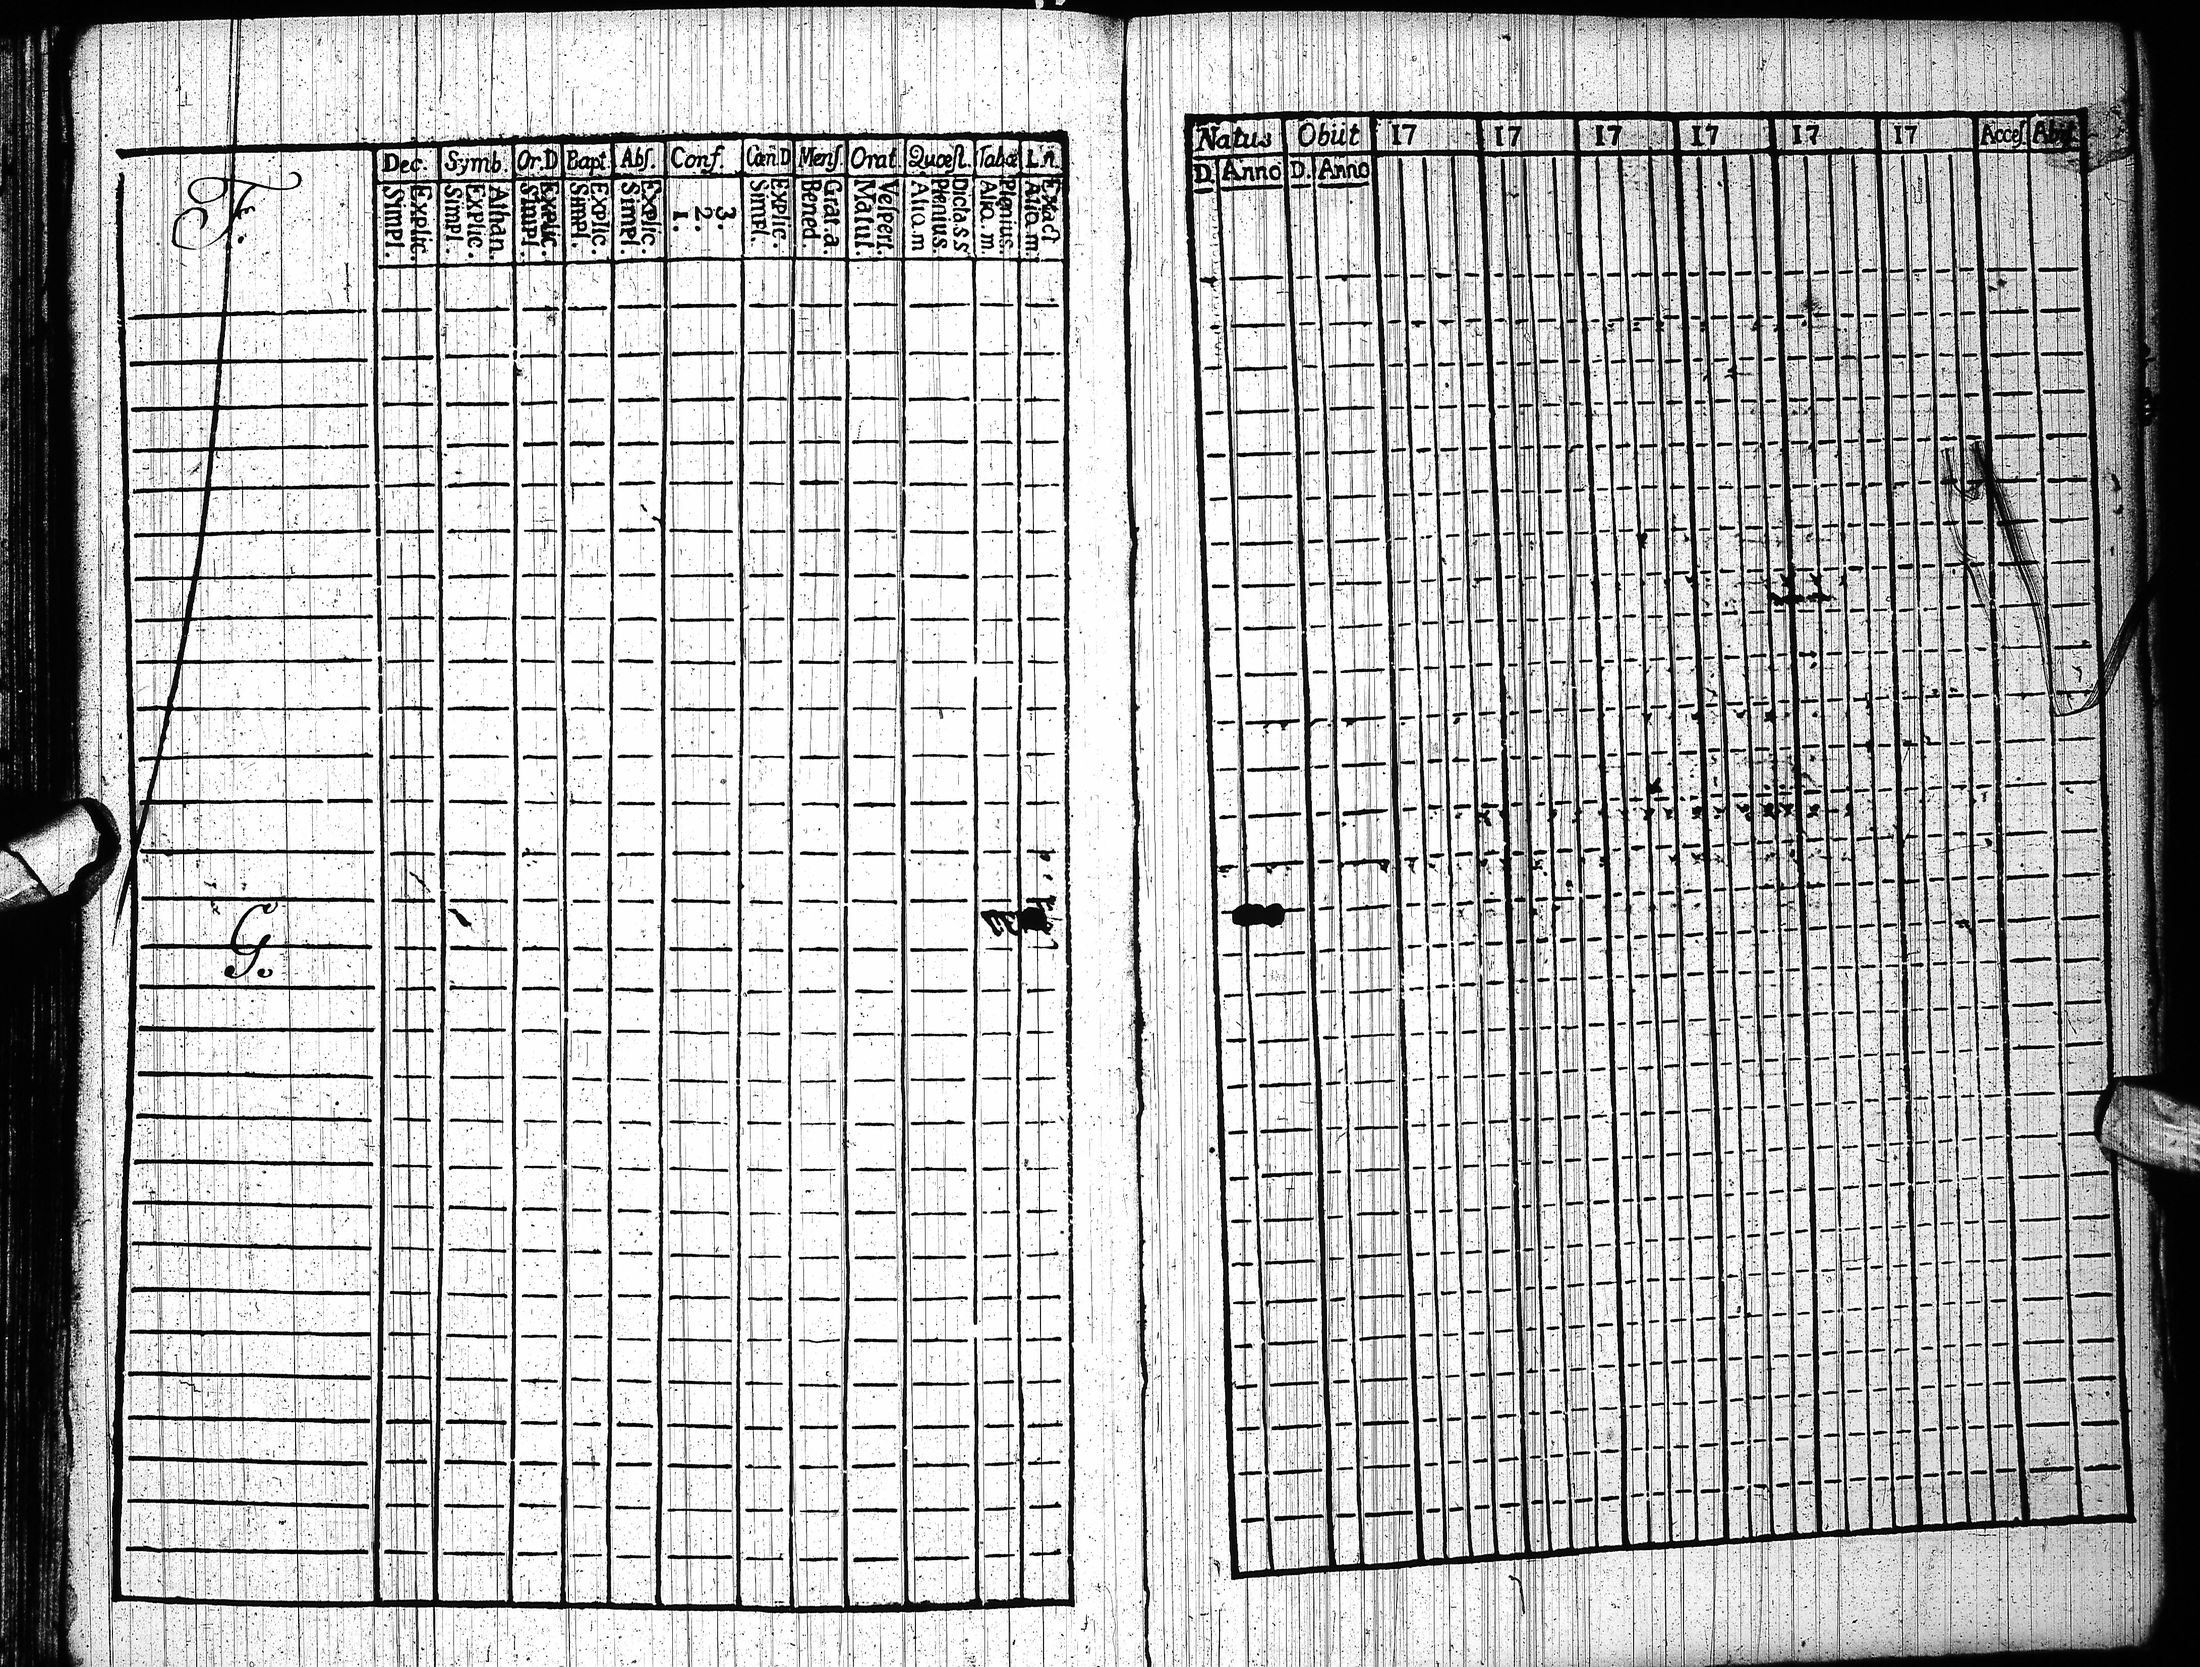 Dec. Symb. Or. D Bapt. Abſ. Conf. Cœn. D Menſ. Orat. Quœſt. Tabœ L. n.
F.
Simpl. Explic.
Simpl. Explic. Athan.
Simpl. Explic.
Simpl. Explic.
Simpl. Explic.
1. 2. 3.
Simpl. Explic.
Bened. Grat. a.
Matut. Veſpert.
Alio. m Plenius. Dicta. s s
Alio. m. Plenius.
Alio. m. Exact
G.
Natus Obiit 17 17 17 17 17 17 Acceſ. Abiit.
D. Anno D. Anno